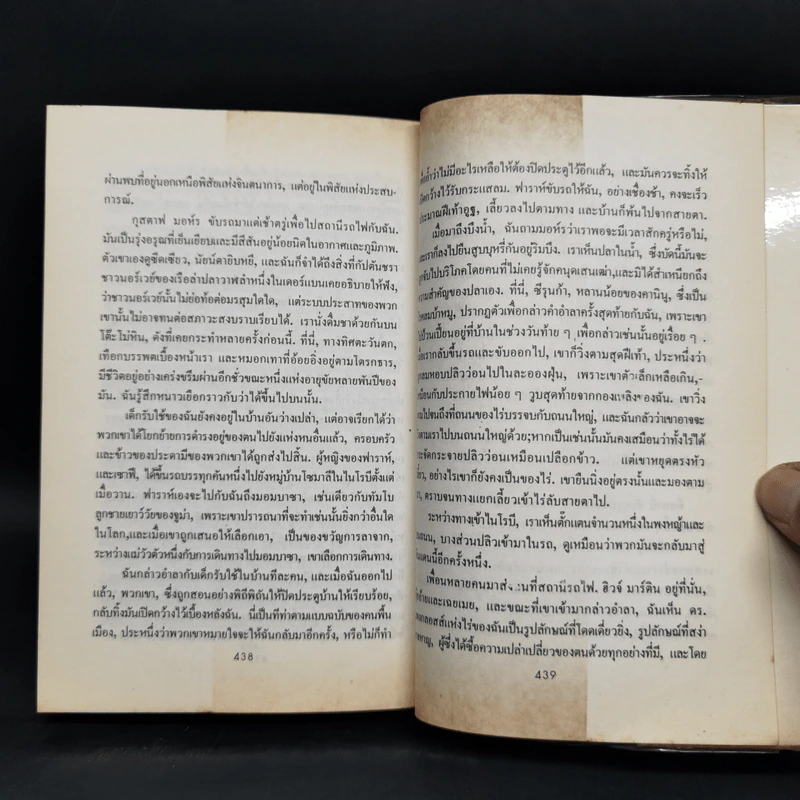 ผ่านพบที่อยู่นอกเหนือพิสัยแห่งจินตนาการ, แต่อยู่ในพิสัยแห่งประสบ-
การณ์.
กุสตาฟ มอห์ร ขับรถมาแต่เช้าตรู่เพื่อไปสถานีรถไฟกับฉัน.
มันเป็นรุ่งอรุณที่เย็นเยียบและมีสีสันอยู่น้อยนิดในอากาศและภูมิภาพ.
ตัวเขาเองดูซีดเซียว, นัยน์ตายิบหยี, และฉันก็จำได้ถึงสิ่งที่กัปตันชรา
ชาวนอร์เวย์ของเรือล่าปลาวาฬลำหนึ่งในเดอร์แบนเคยอธิบายให้ฟัง,
ว่าชาวนอร์เวย์นั้นไม่ย่อท้อต่อมรสุมใดใด, แต่ระบบประสาทของพวก
เขานั้นไม่อาจทนต่อสภาวะสงบราบเรียบได้. เรานั่งดื่มชาด้วยกันบน
โต๊ะโม่หิน, ดังที่เคยกระทำหลายครั้งก่อนนี้. ที่นี่, ทางทิศตะวันตก,
เทือกบรรพตเบื้องหน้าเรา และหมอกเทาที่อ้อยอิ่งอยู่ตามโตรกธาร,
มีชีวิตอยู่อย่างเคร่งขรึมผ่านอีกชั่วขณะหนึ่งแห่งอายุขัยหลายพันปีของ
มัน. ฉันรู้สึกหนาวเยือกราวกับว่าได้ขึ้นไปบนนั้น.
เด็กรับใช้ของฉันยังคงอยู่ในบ้านอันว่างเปล่า, แต่อาจเรียกได้ว่า
พวกเขาได้โยกย้ายการดำรงอยู่ของตนไปยังแห่งหนอื่นแล้ว, ครอบครัว
และข้าวของประดามีของพวกเขาได้ถูกส่งไปสิ้น. ผู้หญิงของฟาราห์,
และเซาฟี, ได้ขึ้นรถบรรทุกคันหนึ่งไปยังหมู่บ้านโซมาลีในไนโรบีตั้งแต่
เมื่อวาน. ฟาราห์เองจะไปกับฉันถึงมอมบาซา, เช่นเดียวกับทัมโบ
ลูกชายเยาว์วัยของจูม่า, เพราะเขาปรารถนาที่จะทำเช่นนั้นยิ่งกว่าอื่นใด
ในโลก,และเมื่อเขาถูกเสนอให้เลือกเอา, เป็นของขวัญการลาจาก,
ระหว่างแม่วัวตัวหนึ่งกับการเดินทางไปมอมบาซา, เขาเลือกการเดินทาง.
ฉันกล่าวอำลากับเด็กรับใช้ในบ้านทีละคน, และเมื่อฉันออกไป
แล้ว, พวกเขา, ซึ่งถูกสอนอย่างพิถีพิถันให้ปิดประตูบ้านให้เรียบร้อย,
กลับทิ้งมันเปิดกว้างไว้เบื้องหลังฉัน. นี่เป็นทีท่าตามแบบฉบับของคนพื้น
เมือง, ประหนึ่งว่าพวกเขาหมายใจจะให้ฉันกลับมาอีกครั้ง, หรือไม่ก็ทำ
438
ว่าไม่มีอะไรเหลือให้ต้องปิดประตูไว้อีกแล้ว, และมันควรจะทิ้งให้
เปิดกว้างไว้รับกระแสลม. ฟาราห์ขับรถให้ฉัน, อย่างเชื่องช้า, คงจะเร็ว
ประมาณฝีเท้าอูฐ, เลี้ยวลงไปตามทาง และบ้านก็พ้นไปจากสายตา.
เมื่อมาถึงบึงน้ำ, ฉันถามมอห์รว่าเราพอจะมีเวลาสักครู่หรือไม่,
และเราก็ลงไปยืนสูบบุหรี่กันอยู่ริมบึง. เราเห็นปลาในน้ำ, ซึ่งบัดนี้มันจะ
จับไปบริโภคโดยคนที่ไม่เคยรู้จักคนุดเสนเฒ่า,และมิได้สำเหนียกถึง
ความสำคัญของปลาเอง. ที่นี่, ซีรุนก้า, หลานน้อยของคานินู, ซึ่งเป็น
โรคลมบ้าหมู, ปรากฏตัวเพื่อกล่าวคำอำลาครั้งสุดท้ายกับฉัน, เพราะเขา
ไปบ้านเปี้ยนอยู่ที่บ้านในช่วงวันท้าย ๆ เพื่อกล่าวเช่นนั้นอยู่เรื่อย ๆ .
เรากลับขึ้นรถและขับออกไป, เขาก็วิ่งตามสุดฝีเท้า, ประหนึ่งว่า
ลมหอบปลิวว่อนไปในละอองฝุ่น, เพราะเขาตัวเล็กเหลือเกิน,-
เหมือนกับประกายไฟน้อย ๆ วูบสุดท้ายจากกองเพลิงของฉัน. เขาวิ่ง
จนถึงที่ถนนของไร่บรรจบกับถนนใหญ่, และฉันกลัวว่าเขาอาจจะ
ตามเราไปบนถนนใหญ่ด้วย;หากเป็นเช่นนั้นมันคงเสมือนว่าทั้งไร่ได้
กระจัดกระจายปลิวว่อนเหมือนเปลือกข้าว. แต่เขาหยุดตรงหัว
อย่างไรเขาก็ยังคงเป็นของไร่. เขายืนนิ่งอยู่ตรงนั้นและมองตาม
ตราบจนทางแยกเลี้ยวเข้าไร่ลับสายตาไป.
ระหว่างทางเข้าไนโรบี, เราเห็นตั๊กแตนจำนวนหนึ่งในพงหญ้าและ
บางส่วนปลิวเข้ามาในรถ, ดูเหมือนว่าพวกมันจะกลับมาสู่
แดนนี้อีกครั้งหนึ่ง.
เพื่อนหลายคนมาส่งฉันที่สถานีรถไฟ. ฮิวจ์ มาร์ติน อยู่ที่นั่น,
และเฉยเมย, และขณะที่เขาเข้ามากล่าวอำลา, ฉันเห็น ดร.
แห่งไร่ของฉันเป็นรูปลักษณ์ที่โดดเดี่ยวยิ่ง, รูปลักษณ์ที่สง่า
ผู้ซึ่งได้ซื้อความเปล่าเปลี่ยวของตนด้วยทุกอย่างที่มี, และโดย
439